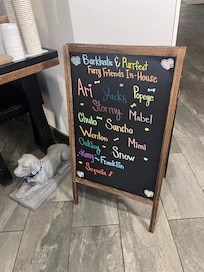 Barktastic & Purrfect
Furry Friends In-House
Ari Jacks Popeye
Stormy Mabel
Chulo Sancho
Weston Mimi
Oakley Snow
Franklin
Sequoia